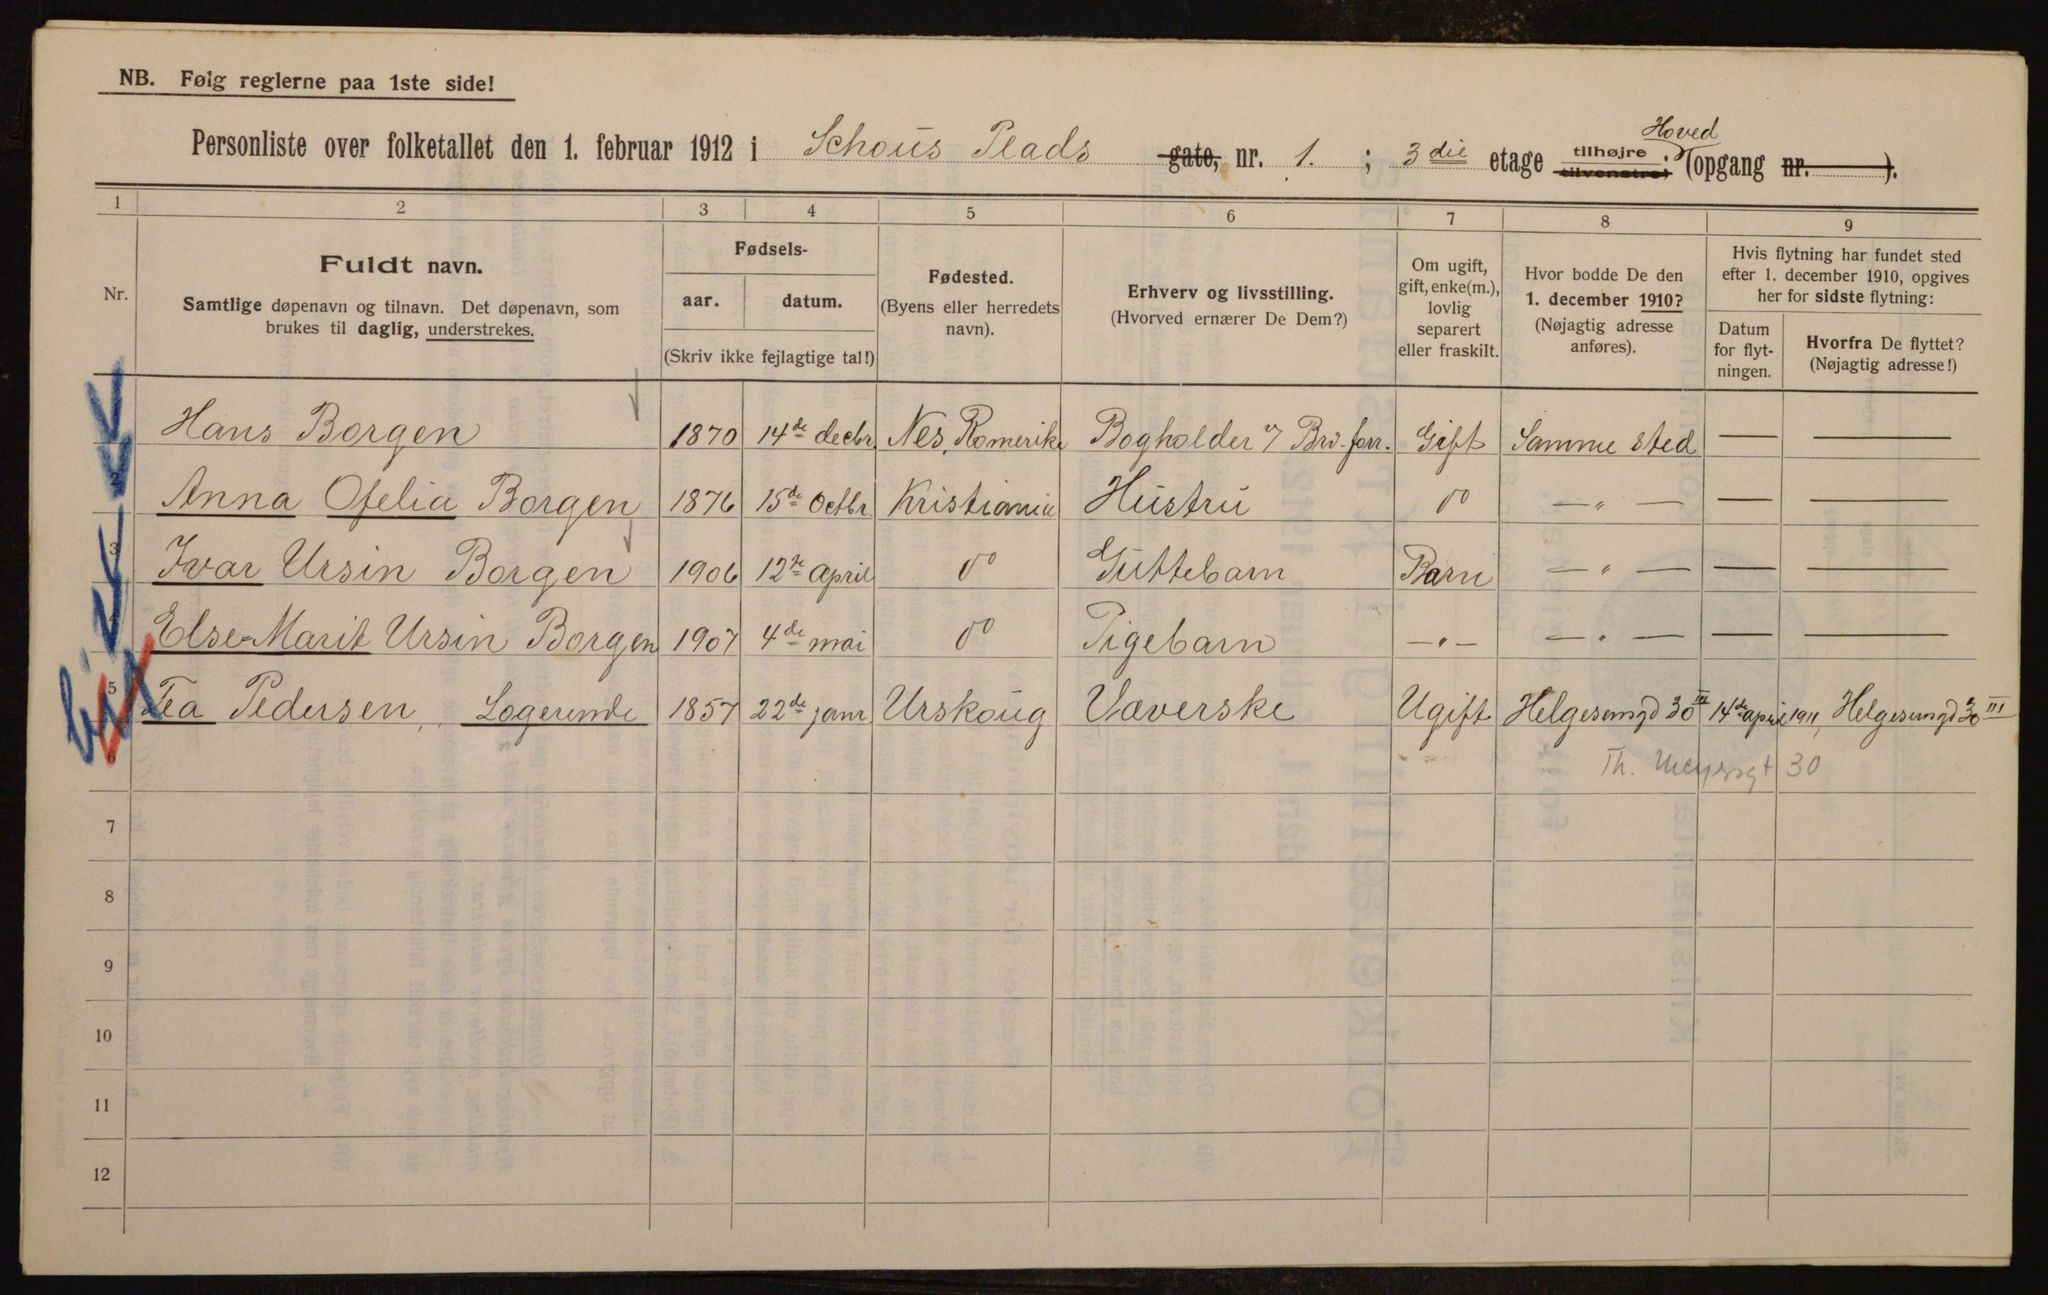 NB. Følg reglerne paa 1ste side!
Hoved
Personliste over folketallet den 1. februar 1912 i Schous Plads gate, nr. 1. ; 3die etage tilhøjre tilvenstre (opgang nr. ).
1 2 3 4 5 6 7 8 9
Nr.
Fuldt navn.
Samtlige døpenavn og tilnavn. Det døpenavn, som
brukes til daglig, understrekes.
Fødsels-
aar. datum.
(Skriv ikke fejlagtige tal!)
Fødested.
(Byens eller herredets
navn).
Erhverv og livsstilling.
(Hvorved ernærer De Dem?)
Om ugift,
gift, enke(m.),
lovlig
separert
eller fraskilt.
Hvor bodde De den
1. december 1910?
(Nøjagtig adresse
anføres).
Hvis flytning har fundet sted
efter 1. december 1910, opgives
her for sidste flytning:
Datum
for flyt-
ningen.
Hvorfra De flyttet?
(Nøjagtig adresse!)
Hans Borgen 1870 14de decbr. Nes, Romerike Bogholder Gift Samme sted — —
2 Anna Ofelia Borgen 1876 15de octbr. Kristiania Hustru do — " — — —
3 Ivar Ursin Borgen 1906 12te april do Guttebarn Barn — " — — —
4 Else-Marit Ursin Borgen 1907 4de mai do Pigebarn — " — — " — — —
5 Tea Pedersen, Logerende 1857 22de janr Urskoug Væverske Ugift Helgesensgd 30 III 14de april 1911, Helgesensgd 30 III
6 Th. Meyersgt 30
7
8
9
10
11
12